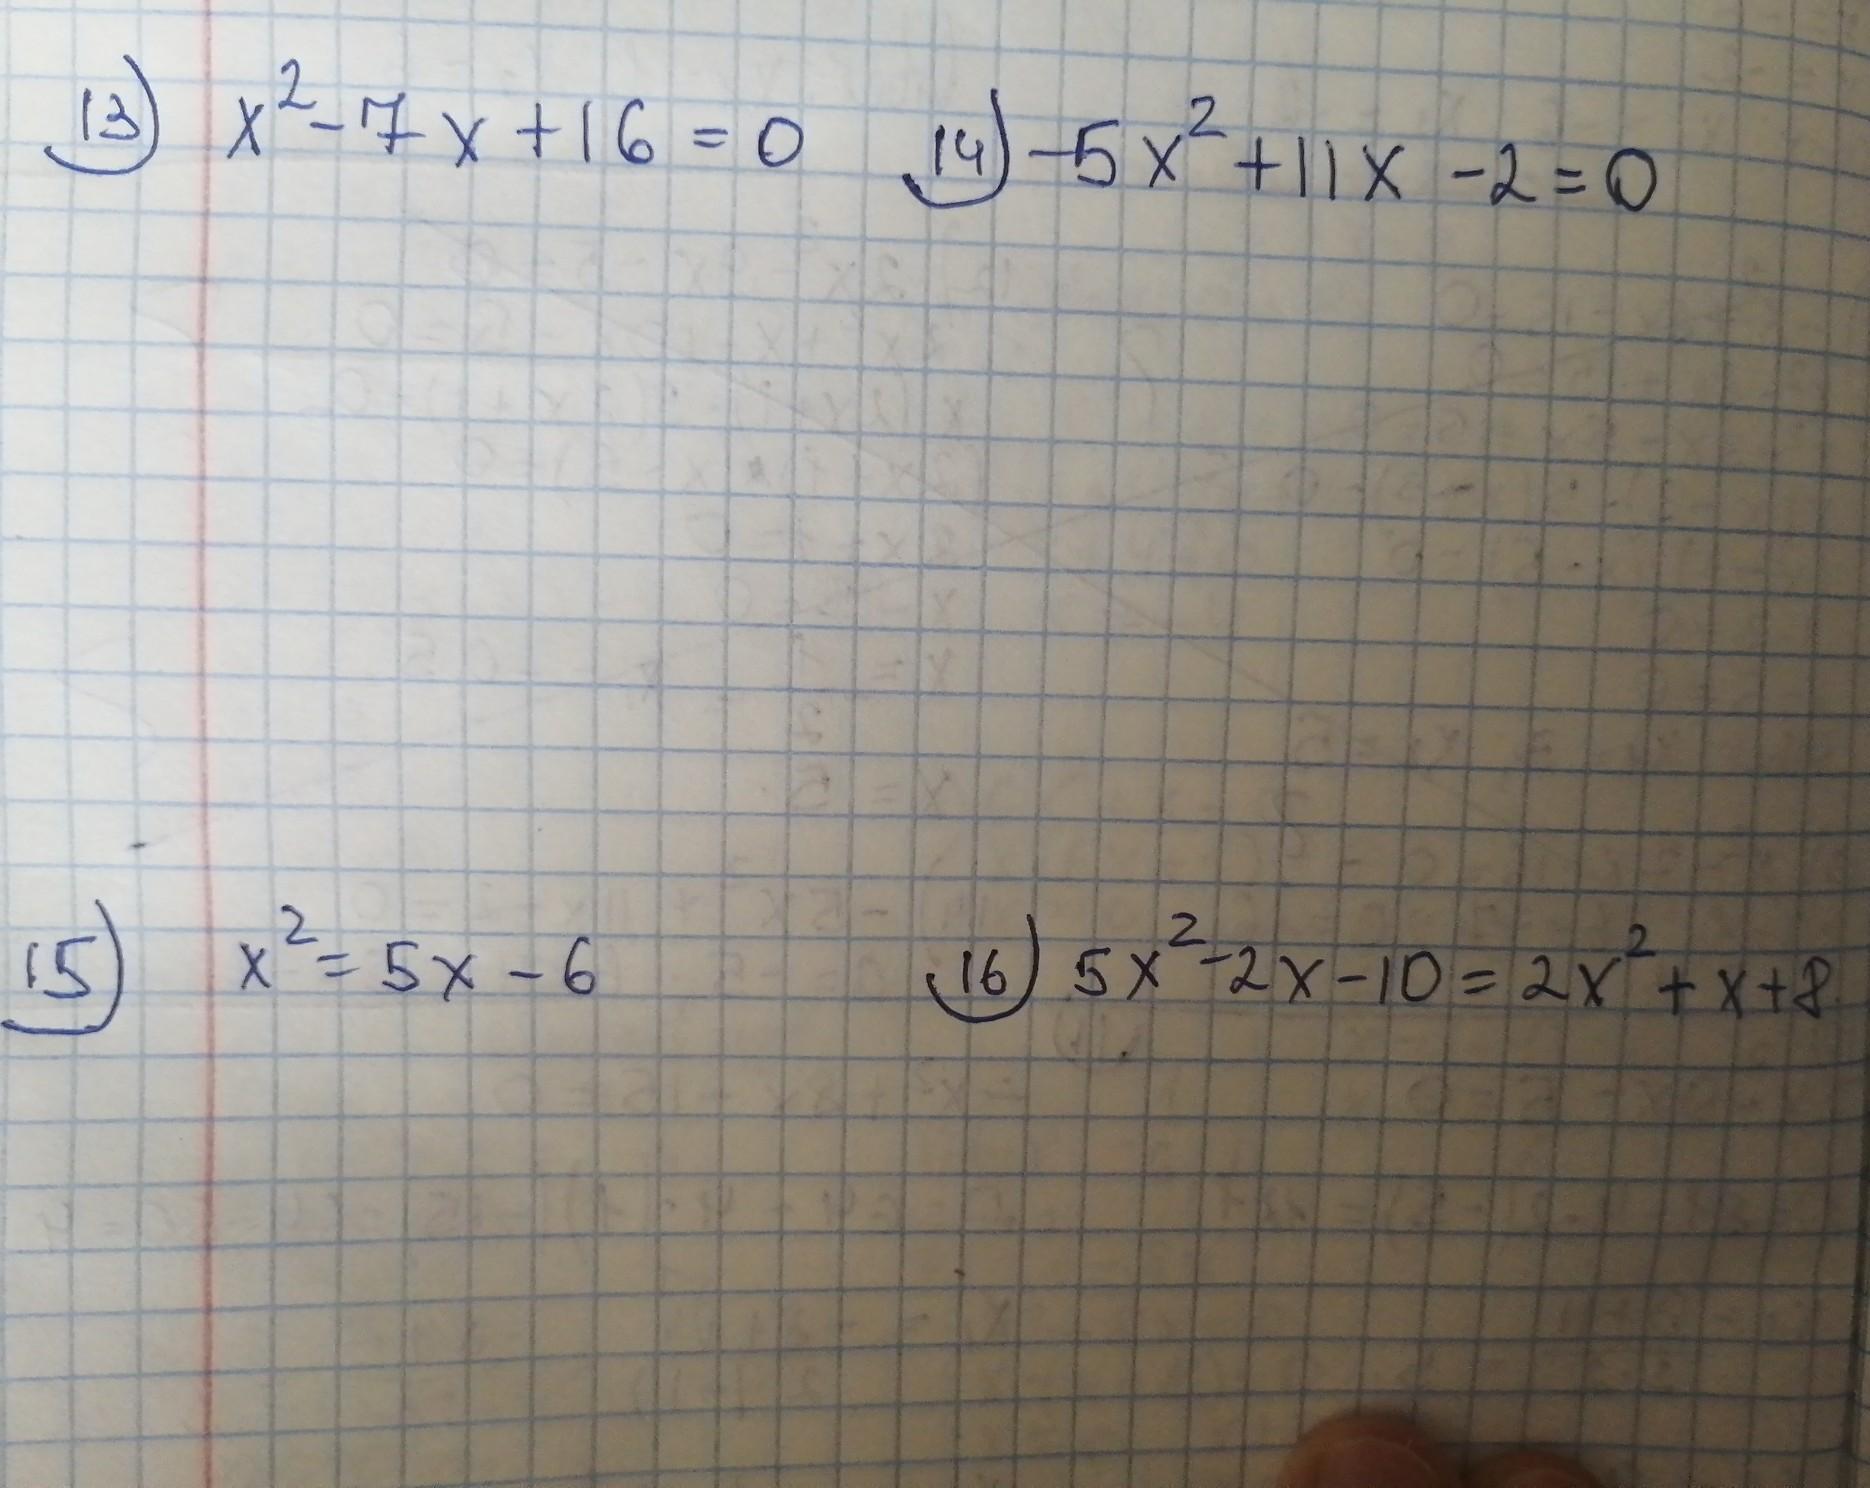 13) x² - 7x + 16 = 0
14) -5x² + 11x - 2 = 0
15) x² = 5x - 6
16) 5x² - 2x - 10 = 2x² + x + 8